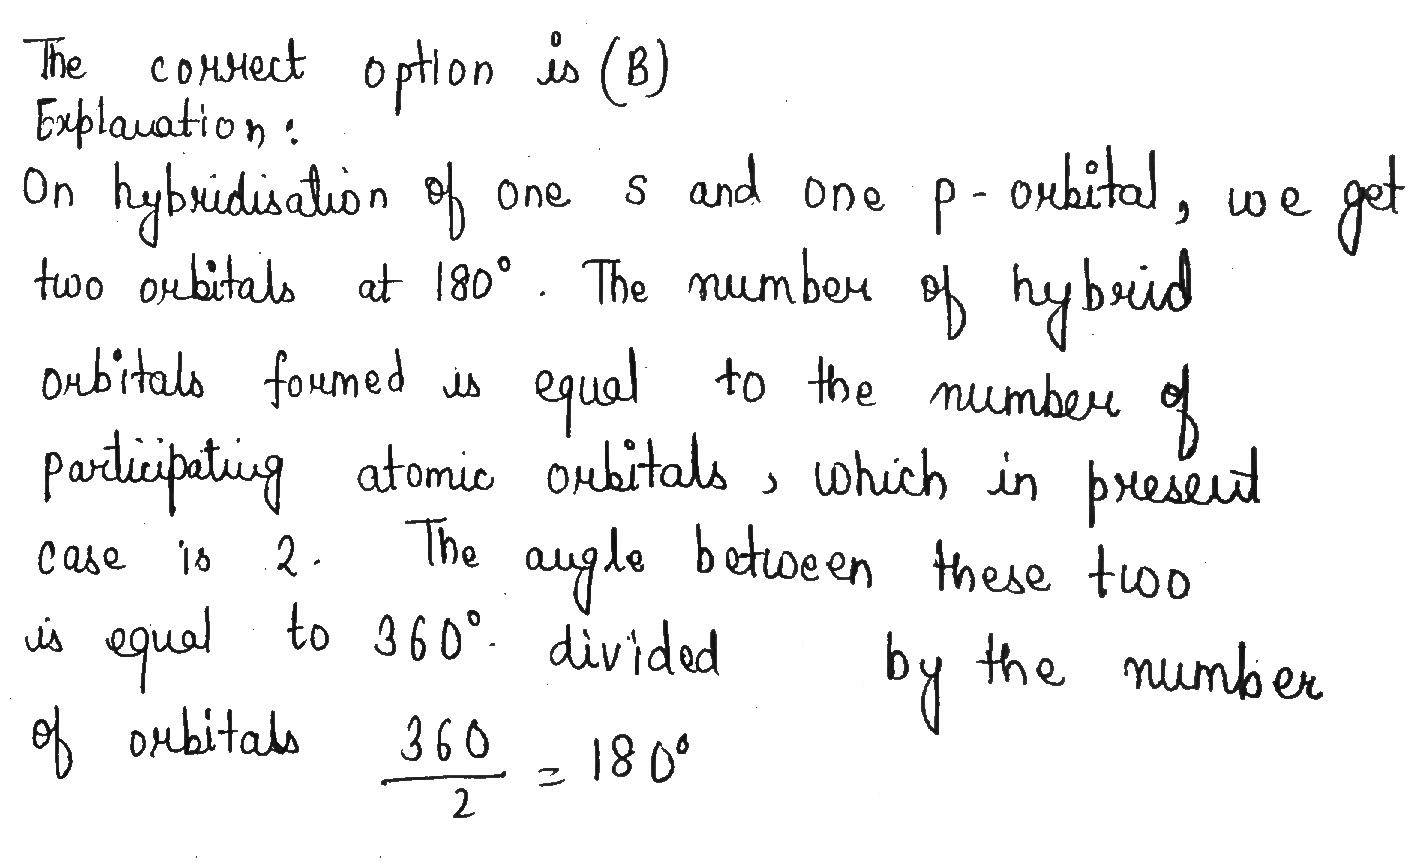 The correct option is (B)
Explanation:
On hybridisation of one s and one p-orbital, we get
two orbitals at 180°. The number of hybrid
orbitals formed is equal to the number of
participating atomic orbitals, which in present
case is 2. The angle between these two
is equal to 360°. divided by the number
of orbitals 360/2 = 180°